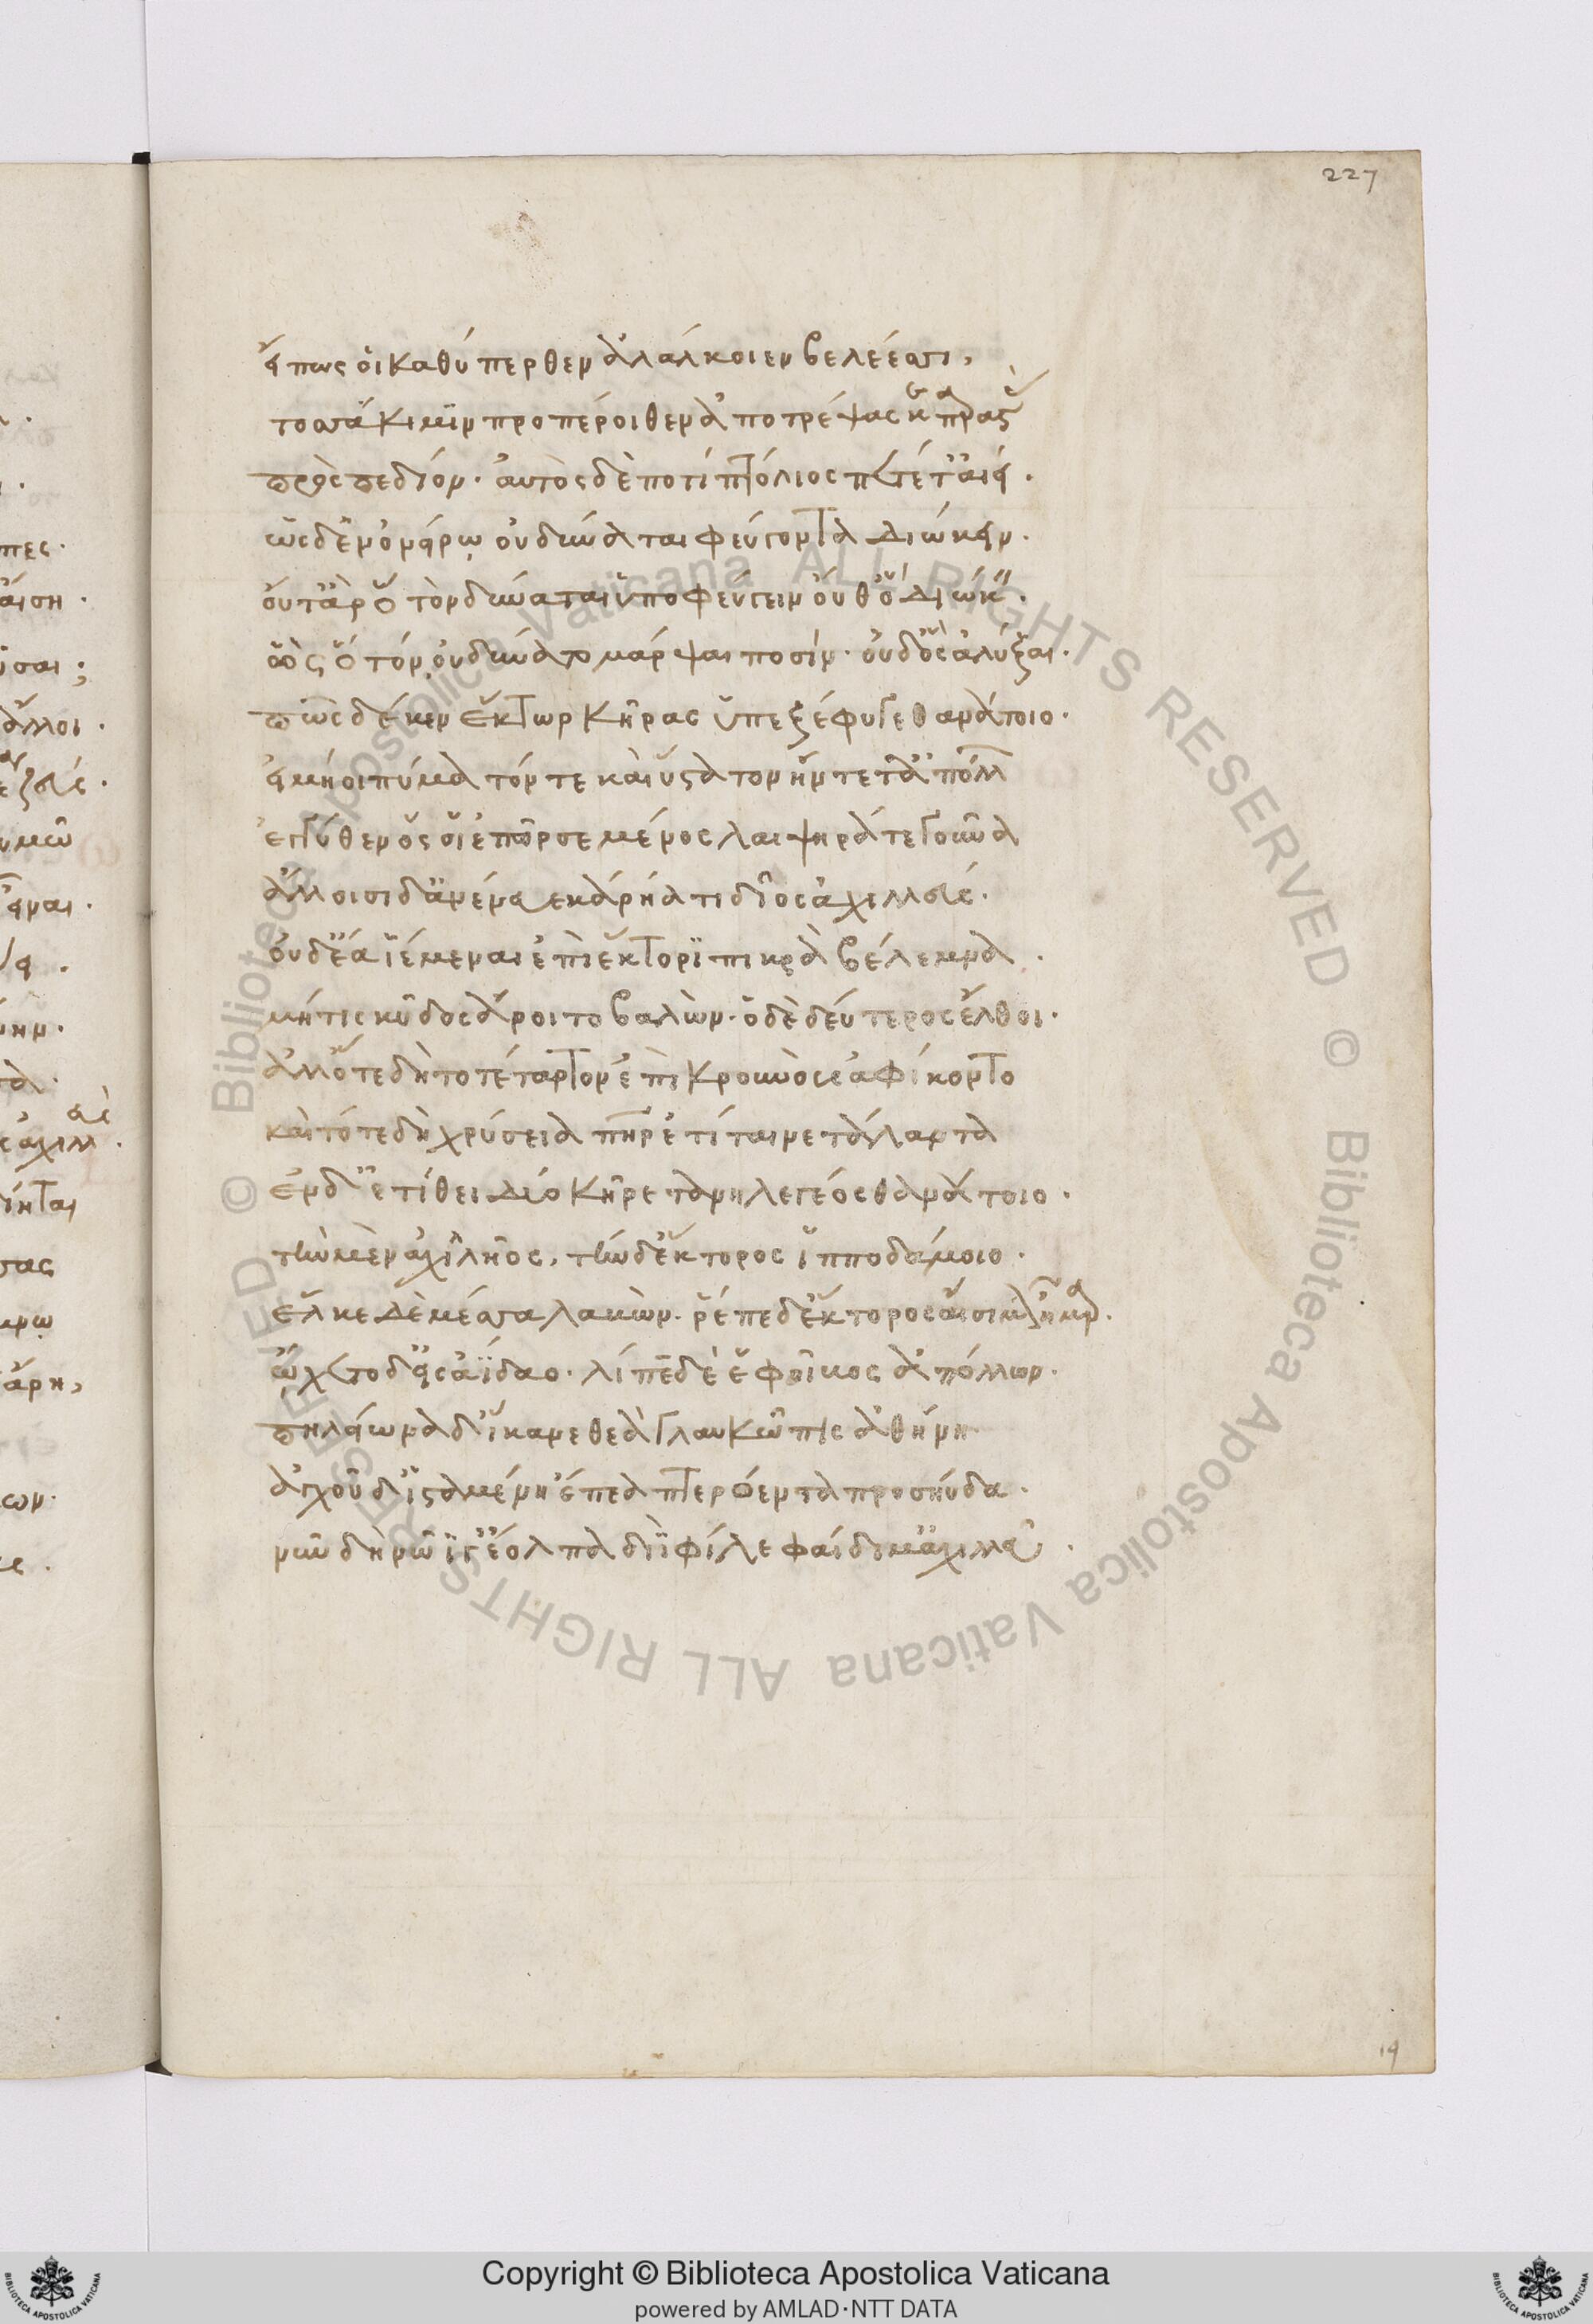 227
εἴ πως οἱ καθύπερθεν ἀλάλκοιεν βελέεσσι,
τοσσάκι μιν προπάροιθεν ἀποτρέψασκε παραφθὰς
πρὸς πεδίον· αὐτὸς δὲ ποτὶ πτόλιος πέτετ' αἰεί·
ὡς δ' ἐν ὀνείρῳ οὐ δύναται φεύγοντα διώκειν·
οὔτ' ἂρ ὃ τὸν δύναται ὑποφεύγειν οὔθ' ὃ διώκειν·
ὣς ὃ τὸν οὐ δύνατο μάρψαι ποσίν· οὐδ' ὃς ἀλύξαι·
πῶς δέ κεν Ἕκτωρ κῆρας ὑπεξέφυγε θανάτοιο·
εἰ μή οἱ πύματόν τε καὶ ὕστατον ἤντετ' ἀπόλλων
ἐγγύθεν ὅς οἱ ἐπῶρσε μένος λαιψηρά τε γοῦνα
ἄλλοισι δ' ἀνένευε κάρήατι δῖος ἀχιλλεύς·
οὐδ' ἔα ἱέμεναι ἐπὶ ἕκτορι πικρὰ βέλεμνα·
μή τις κῦδος ἄροιτο βαλών· ὁ δὲ δεύτερος ἔλθοι·
ἀλλ' ὅτε δὴ τὸ τέταρτον ἐπὶ κρουνοὺς ἀφίκοντο
καὶ τότε δὴ χρύσεια πατὴρ ἐτίταινε τάλαντα
ἐν δ' ἐτίθει δύο κῆρε τανηλεγέος θανάτοιο·
τὴν μὲν ἀχιλλῆος, τὴν δ' ἕκτορος ἱπποδάμοιο·
ἕλκε δὲ μέσσα λαβών· ῥέπε δ' ἕκτορος αἴσιμον ἦμαρ·
ᾤχετο δ' εἰς ἀΐδαο· λίπεν δέ ἑ φοῖβος ἀπόλλων·
πηλείωνα δ' ἵκανε θεὰ γλαυκῶπις ἀθήνη·
ἀγχοῦ δ' ἱσταμένη ἔπεα πτερόεντα προσηύδα·
νῦν δὴ νῶϊ γ' ἔολπα διῒ φίλε φαίδιμ' ἀχιλλεῦ·
19
© Biblioteca Apostolica Vaticana ALL RIGHTS RESERVED © Biblioteca Apostolica Vaticana ALL RIGHTS RESERVED
Copyright © Biblioteca Apostolica Vaticana
powered by AMLAD·NTT DATA
BIBLIOTECA APOSTOLICA VATICANA
BIBLIOTECA APOSTOLICA VATICANA